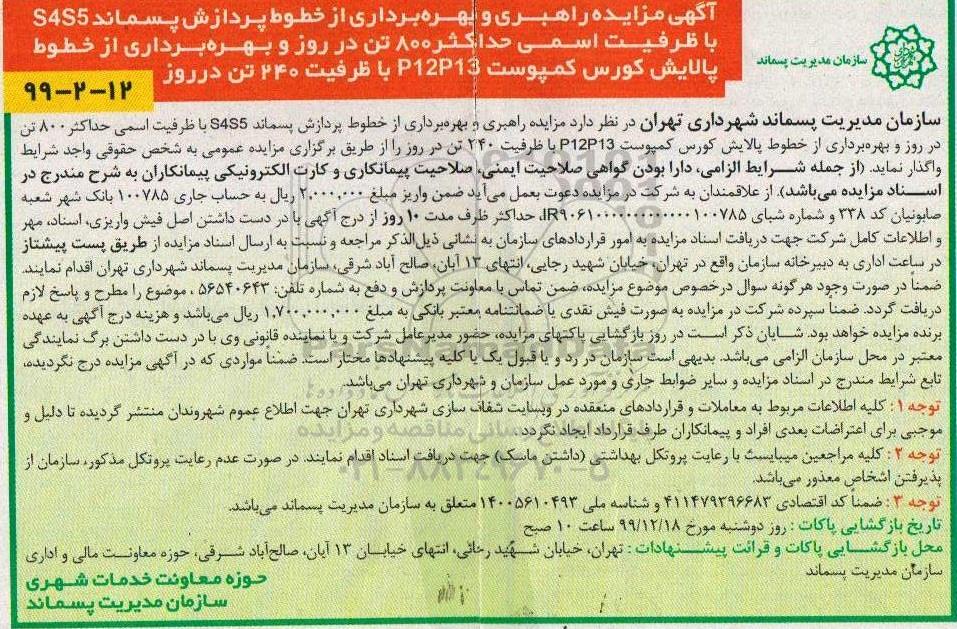 آگهی مزایده راهبری و بهره‌برداری از خطوط پردازش پسماند S4S5
با ظرفیت اسمی حداکثر ۸۰۰ تن در روز و بهره‌برداری از خطوط
پالایش کورس کمپوست P12P13 با ظرفیت ۲۴۰ تن درروز
سازمان مدیریت پسماند
۹۹-۲-۱۲
سازمان مدیریت پسماند شهرداری تهران در نظر دارد مزایده راهبری و بهره‌برداری از خطوط پردازش پسماند S4S5 با ظرفیت اسمی حداکثر ۸۰۰ تن
در روز و بهره‌برداری از خطوط پالایش کورس کمپوست P12P13 با ظرفیت ۲۴۰ تن در روز را از طریق برگزاری مزایده عمومی به شخص حقوقی واجد شرایط
واگذار نماید. (از جمله شرایط الزامی، دارا بودن گواهی صلاحیت ایمنی، صلاحیت پیمانکاری و کارت الکترونیکی پیمانکاران به شرح مندرج در
اسناد مزایده می‌باشد). از علاقمندان به شرکت در مزایده دعوت بعمل می‌آید ضمن واریز مبلغ ۲,۰۰۰,۰۰۰ ریال به حساب جاری ۱۰۰۷۸۵ بانک شهر شعبه
صابونیان کد ۳۳۸ و شماره شبای حداکثر ظرف مدت ۱۰ روز از درج آگهی با در دست داشتن اصل فیش واریزی، اسناد، مهر
و اطلاعات کامل شرکت جهت دریافت اسناد مزایده به امور قراردادهای سازمان به نشانی ذیل‌الذکر مراجعه و نسبت به ارسال اسناد مزایده از طریق پست پیشتاز
در ساعت اداری به دبیرخانه سازمان واقع در تهران، خیابان شهید رجایی، انتهای ۱۳ آبان، صالح آباد شرقی، سازمان مدیریت پسماند شهرداری تهران اقدام نمایند.
ضمناً در صورت وجود هرگونه سوال درخصوص موضوع مزایده، ضمن تماس با معاونت پردازش و دفع به شماره تلفن: ۵۶۵۴۰۶۴۳ ، موضوع را مطرح و پاسخ لازم
دریافت گردد. ضمناً سپرده شرکت در مزایده به صورت فیش نقدی یا ضمانتنامه معتبر بانکی به مبلغ ۱,۷۰۰,۰۰۰,۰۰۰ ریال می‌باشد و هزینه درج آگهی به عهده
برنده مزایده خواهد بود. شایان ذکر است در روز بازگشایی پاکتهای مزایده، حضور مدیرعامل شرکت و یا نماینده قانونی وی با در دست داشتن برگ نمایندگی
معتبر در محل سازمان الزامی می‌باشد. بدیهی است سازمان در رد و یا قبول یک یا کلیه پیشنهادها مختار است. ضمناً مواردی که در آگهی مزایده درج نگردیده،
تابع شرایط مندرج در اسناد مزایده و سایر ضوابط جاری و مورد عمل سازمان و شهرداری تهران می‌باشد.
توجه ۱ : کلیه اطلاعات مربوط به معاملات و قراردادهای منعقده در وبسایت شفاف سازی شهرداری تهران جهت اطلاع عموم شهروندان منتشر گردیده تا دلیل و
موجبی برای اعتراضات بعدی افراد و پیمانکاران طرف قرارداد ایجاد نگردد.
توجه ۲ : کلیه مراجعین میبایست با رعایت پروتکل بهداشتی (داشتن ماسک) جهت دریافت اسناد اقدام نمایند. در صورت عدم رعایت پروتکل مذکور، سازمان از
پذیرفتن اشخاص معذور می‌باشد.
توجه ۳ : ضمناً کد اقتصادی ۴۱۱۴۷۹۳۹۶۶۸۳ و شناسه ملی ۱۴۰۰۵۶۱۰۴۹۳ متعلق به سازمان مدیریت پسماند می‌باشد.
تاریخ بازگشایی پاکات : روز دوشنبه مورخ ۹۹/۱۲/۱۸ ساعت ۱۰ صبح
محل بازگشایی پاکات و قرائت پیشنهادات : تهران، خیابان شهید رجائی، انتهای خیابان ۱۳ آبان، صالح‌آباد شرقی، حوزه معاونت مالی و اداری
سازمان مدیریت پسماند
حوزه معاونت خدمات شهری
سازمان مدیریت پسماند